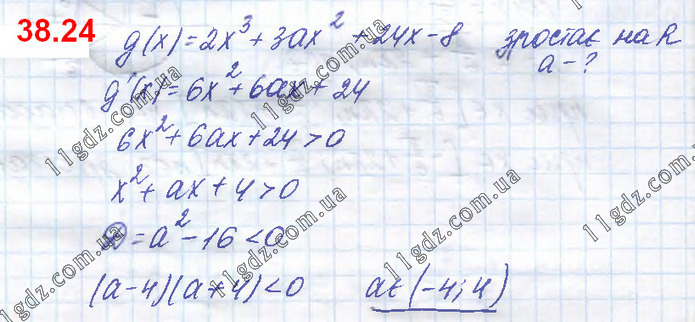 38.24
g(x)=2x³+3ax²+24x-8 зростає на R
a-?
g'(x)=6x²+6ax+24
6x²+6ax+24>0
x²+ax+4>0
D=a²-16<0
(a-4)(a+4)<0 a∈(-4;4)
11gdz.com.ua
11gdz.com.ua
11gdz.com.ua
11gdz.com.ua
11gdz.com.ua
11gdz.com.ua